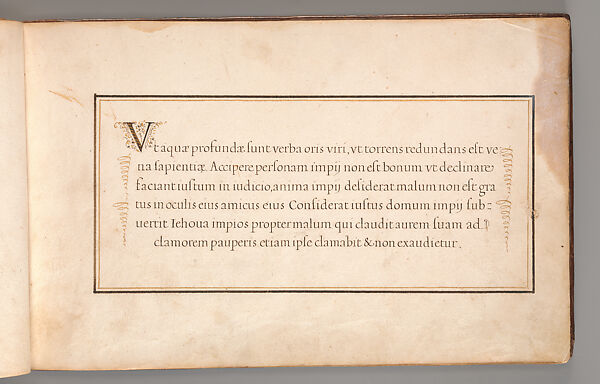 Vt aquæ profundæ sunt verba oris viri, vt torrens redundans est ve
na sapientiæ. Accipere personam impij non est bonum vt declinare
faciant iustum in iudicio, anima impij desiderat malum non est gra
tus in oculis eius amicus eius Considerat iustus domum impij sub:
uertit Iehoua impios propter malum qui claudit aurem suam ad
clamorem pauperis etiam ipse clamabit & non exaudietur.